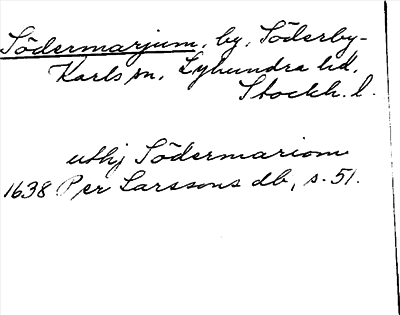 Södermarjum, by, Söderby-
Karls sn, Lyhundra hd,
Stockh. l.
uthj Södermariom
1638 Per Larssons db, s. 51.